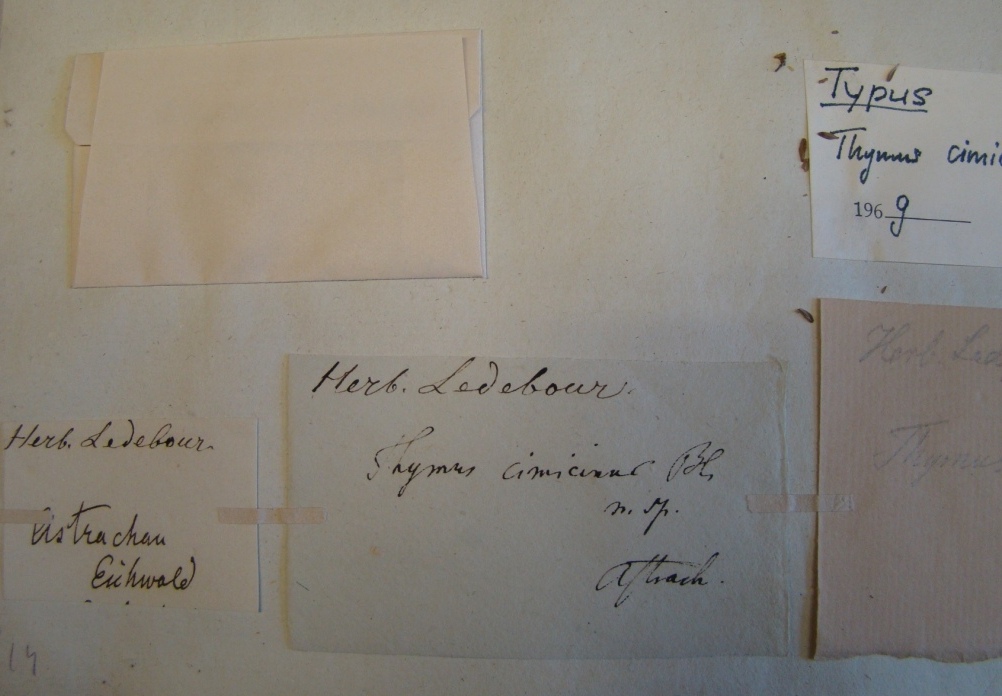 Typus
Thymus cimic
1969
Herb. Ledebour.
Astrachan
Eichwald
Herb. Ledebour.
Thymus cimicinus Bl.
n. sp.
Astrach.
Herb. Lede
Thymus
14